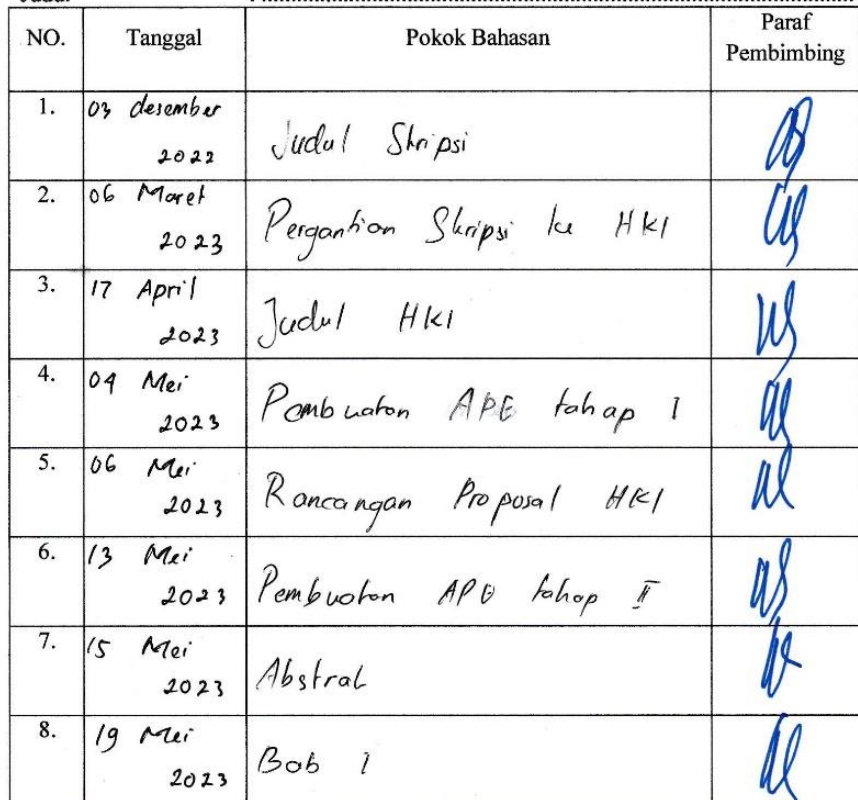 NO. Tanggal Pokok Bahasan Paraf Pembimbing
1. 03 desember 2022 Judul Skripsi
2. 06 Maret 2023 Pergantian Skripsi ke HKI
3. 17 April 2023 Judul HKI
4. 04 Mei 2023 Pembuatan APE tahap I
5. 06 Mei 2023 Rancangan Proposal HKI
6. 13 Mei 2023 Pembuatan APE tahap II
7. 15 Mei 2023 Abstrak
8. 19 Mei 2023 Bab I